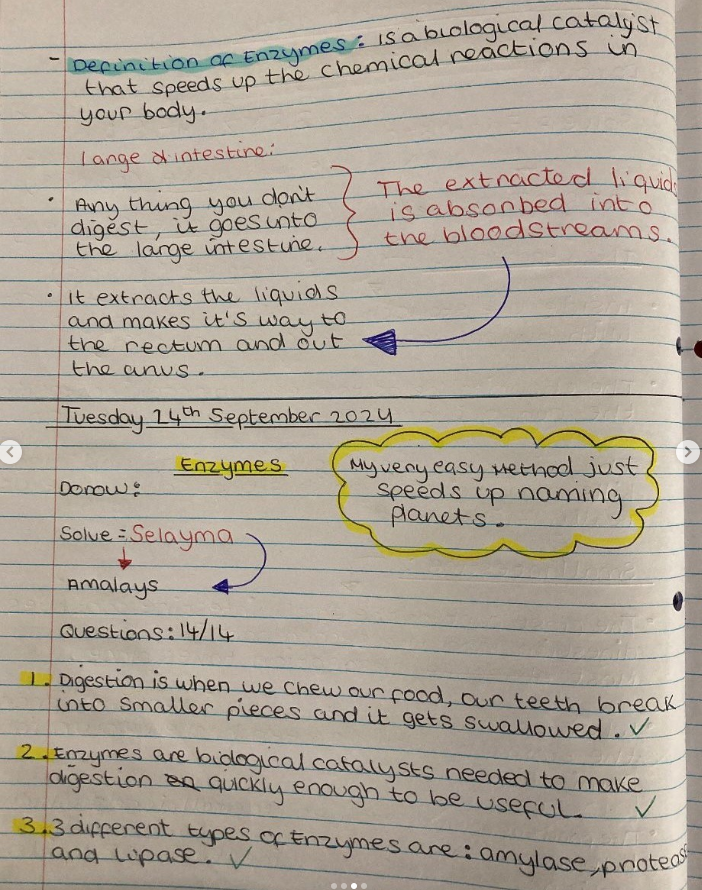 - Definition of Enzymes: is a biological catalyst
that speeds up the chemical reactions in
your body.
large intestine:
• Any thing you don't
digest, it goes into
the large intestine.
The extracted liquid
is absonbed into
the bloodstreams.
• It extracts the liquids
and makes it's way to
the rectum and out
the anus.
Tuesday 24th September 2024
Enzymes
Donow:
My very easy Method just
speeds up naming
planets.
Solve = Selayma
Amalays
Questions: 14/14
1. Digestion is when we chew our food, our teeth break
into smaller pieces and it gets swallowed. ✓
2. Enzymes are biological catalysts needed to make
digestion quickly enough to be useful. ✓
3. 3 different types of Enzymes are: amylase, protease
and lipase. ✓